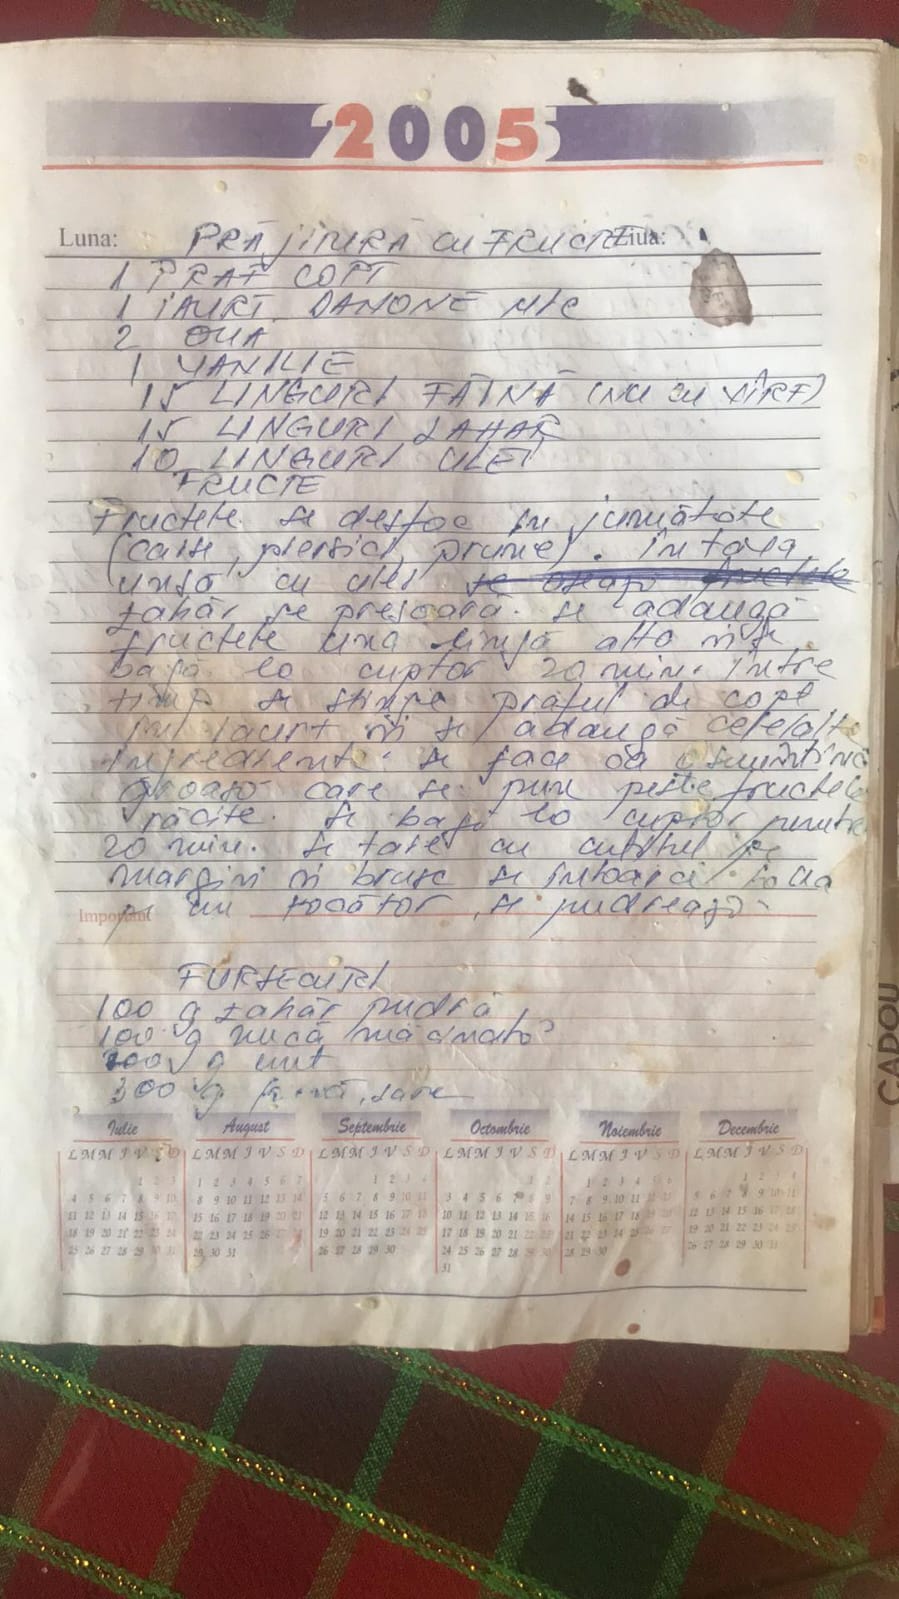 2005
Luna: PRĂJITURĂ CU FRUCTE Ziua:
1 PRAF COPT
1 IAURT DANONE MIC
2 OUĂ
1 VANILIE
15 LINGURI FĂINĂ (NU CU VÎRF)
15 LINGURI ZAHĂR
10 LINGURI ULEI
FRUCTE
Fructele se desfac în jumătate
(caise, piersici, prune). În tava
unsă cu ulei se fructele
zahăr se presoară. se adaugă
fructele una lîngă alta și se
bagă la cuptor 20 min. între
timp se stinge praful de copt
în iaurt și se adaugă celelalte
ingrediente. se face ca o smîntînă
groasă care se pune peste fructele
răcite. Se bagă la cuptor
20 min. se taie cu cuțitul pe
margini și brusc se întoarce tava
Important pe un tocător, se pudrează.
FURSECURI
100 g zahăr pudră
100 g nucă măcinată
200 g unt
300 g făină, sare
CADOU
Iulie August Septembrie Octombrie Noiembrie Decembrie
L M M J V S D L M M J V S D L M M J V S D L M M J V S D L M M J V S D L M M J V S D
1 2 3 1 2 3 4 5 6 7 1 2 3 4 1 2 1 2 3 4 5 6 1 2 3 4
4 5 6 7 8 9 10 8 9 10 11 12 13 14 5 6 7 8 9 10 11 3 4 5 6 7 8 9 7 8 9 10 11 12 13 5 6 7 8 9 10 11
11 12 13 14 15 16 17 15 16 17 18 19 20 21 12 13 14 15 16 17 18 10 11 12 13 14 15 16 14 15 16 17 18 19 20 12 13 14 15 16 17 18
18 19 20 21 22 23 24 22 23 24 25 26 27 28 19 20 21 22 23 24 25 17 18 19 20 21 22 23 21 22 23 24 25 26 27 19 20 21 22 23 24 25
25 26 27 28 29 30 31 29 30 31 26 27 28 29 30 24 25 26 27 28 29 30 28 29 30 26 27 28 29 30 31
31